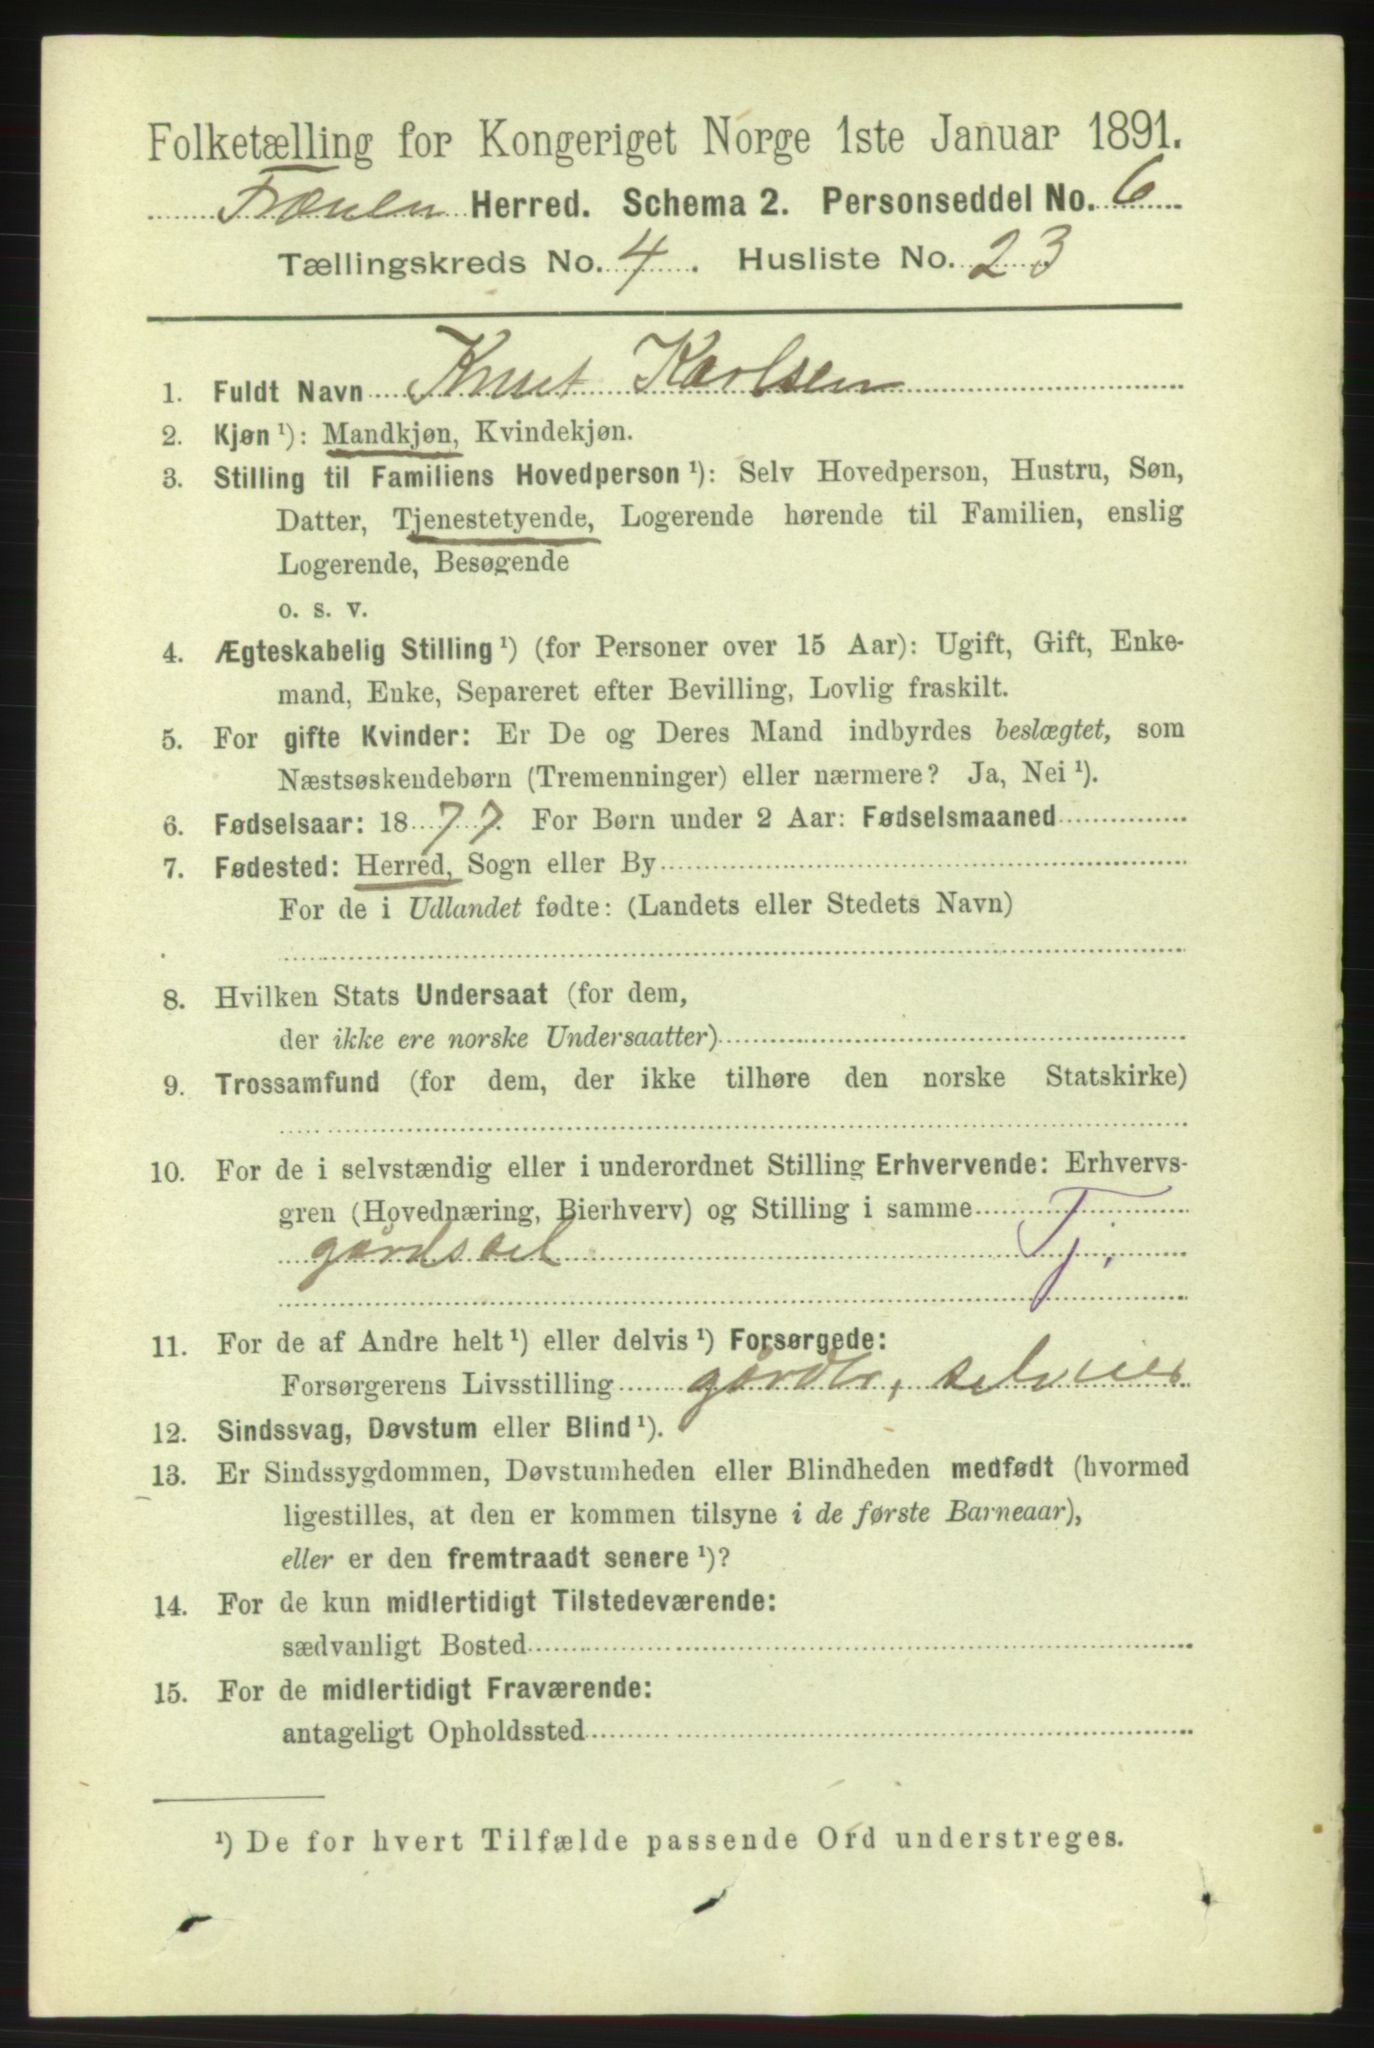 Folketælling for Kongeriget Norge 1ste Januar 1891.
Frænen Herred. Schema 2. Personseddel No. 6
Tællingskreds No. 4. Husliste No. 23
1. Fuldt Navn Knut Karlsen
2. Kjøn ¹): Mandkjøn, Kvindekjøn.
3. Stilling til Familiens Hovedperson ¹): Selv Hovedperson, Hustru, Søn,
Datter, Tjenestetyende, Logerende hørende til Familien, enslig
Logerende, Besøgende
o. s. v.
4. Ægteskabelig Stilling ¹) (for Personer over 15 Aar): Ugift, Gift, Enke-
mand, Enke, Separeret efter Bevilling, Lovlig fraskilt.
5. For gifte Kvinder: Er De og Deres Mand indbyrdes beslægtet, som
Næstsøskendebørn (Tremenninger) eller nærmere? Ja, Nei ¹).
6. Fødselsaar: 1877. For Børn under 2 Aar: Fødselsmaaned
7. Fødested: Herred, Sogn eller By
For de i Udlandet fødte: (Landets eller Stedets Navn)
8. Hvilken Stats Undersaat (for dem,
der ikke ere norske Undersaatter)
9. Trossamfund (for dem, der ikke tilhøre den norske Statskirke)
10. For de i selvstændig eller i underordnet Stilling Erhvervende: Erhvervs-
gren (Hovednæring, Bierhverv) og Stilling i samme
Tj.
11. For de af Andre helt ¹) eller delvis ¹) Forsørgede:
Forsørgerens Livsstilling gårdbr, selveier
12. Sindssvag, Døvstum eller Blind ¹).
13. Er Sindssygdommen, Døvstumheden eller Blindheden medfødt (hvormed
ligestilles, at den er kommen tilsyne i de første Barneaar),
eller er den fremtraadt senere ¹)?
14. For de kun midlertidigt Tilstedeværende:
sædvanligt Bosted
15. For de midlertidigt Fraværende:
antageligt Opholdssted
¹) De for hvert Tilfælde passende Ord understreges.